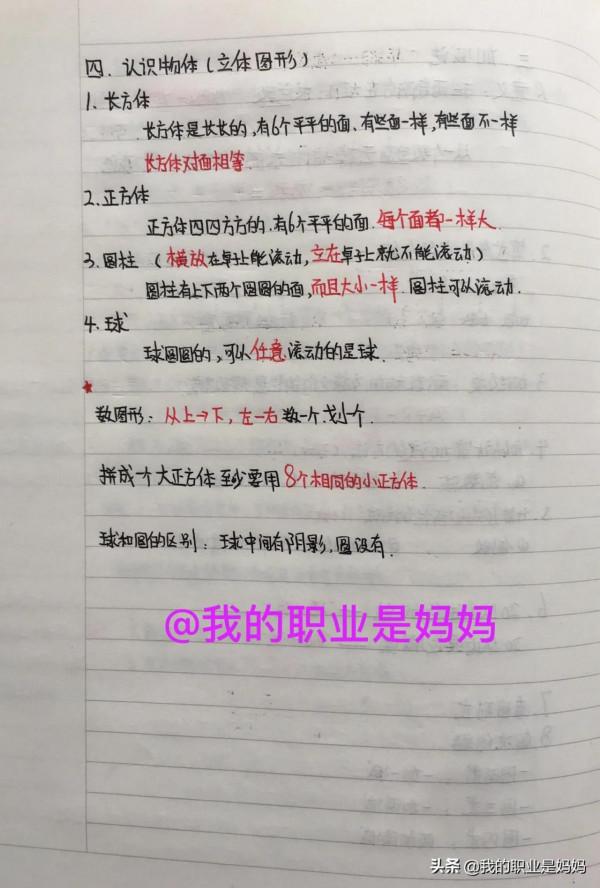 四. 认识物体(立体图形)
1. 长方体
长方体是长长的,有6个平平的面、有些面一样,有些面不一样
长方体对面相等.
2. 正方体
正方体四四方方的.有6个平平的面.每个面都一样大.
3. 圆柱 (横放在桌上能滚动,立在桌上就不能滚动)
圆柱有上下两个圆圆的面,而且大小一样.圆柱可以滚动.
4. 球
球圆圆的,可以任意滚动的是球.
★
数图形:从上→下,左→右数一个.划个.
拼成一个大正方体至少要用8个相同的小正方体.
球和圆的区别:球中间有阴影.圆没有.
@我的职业是妈妈
头条 @我的职业是妈妈